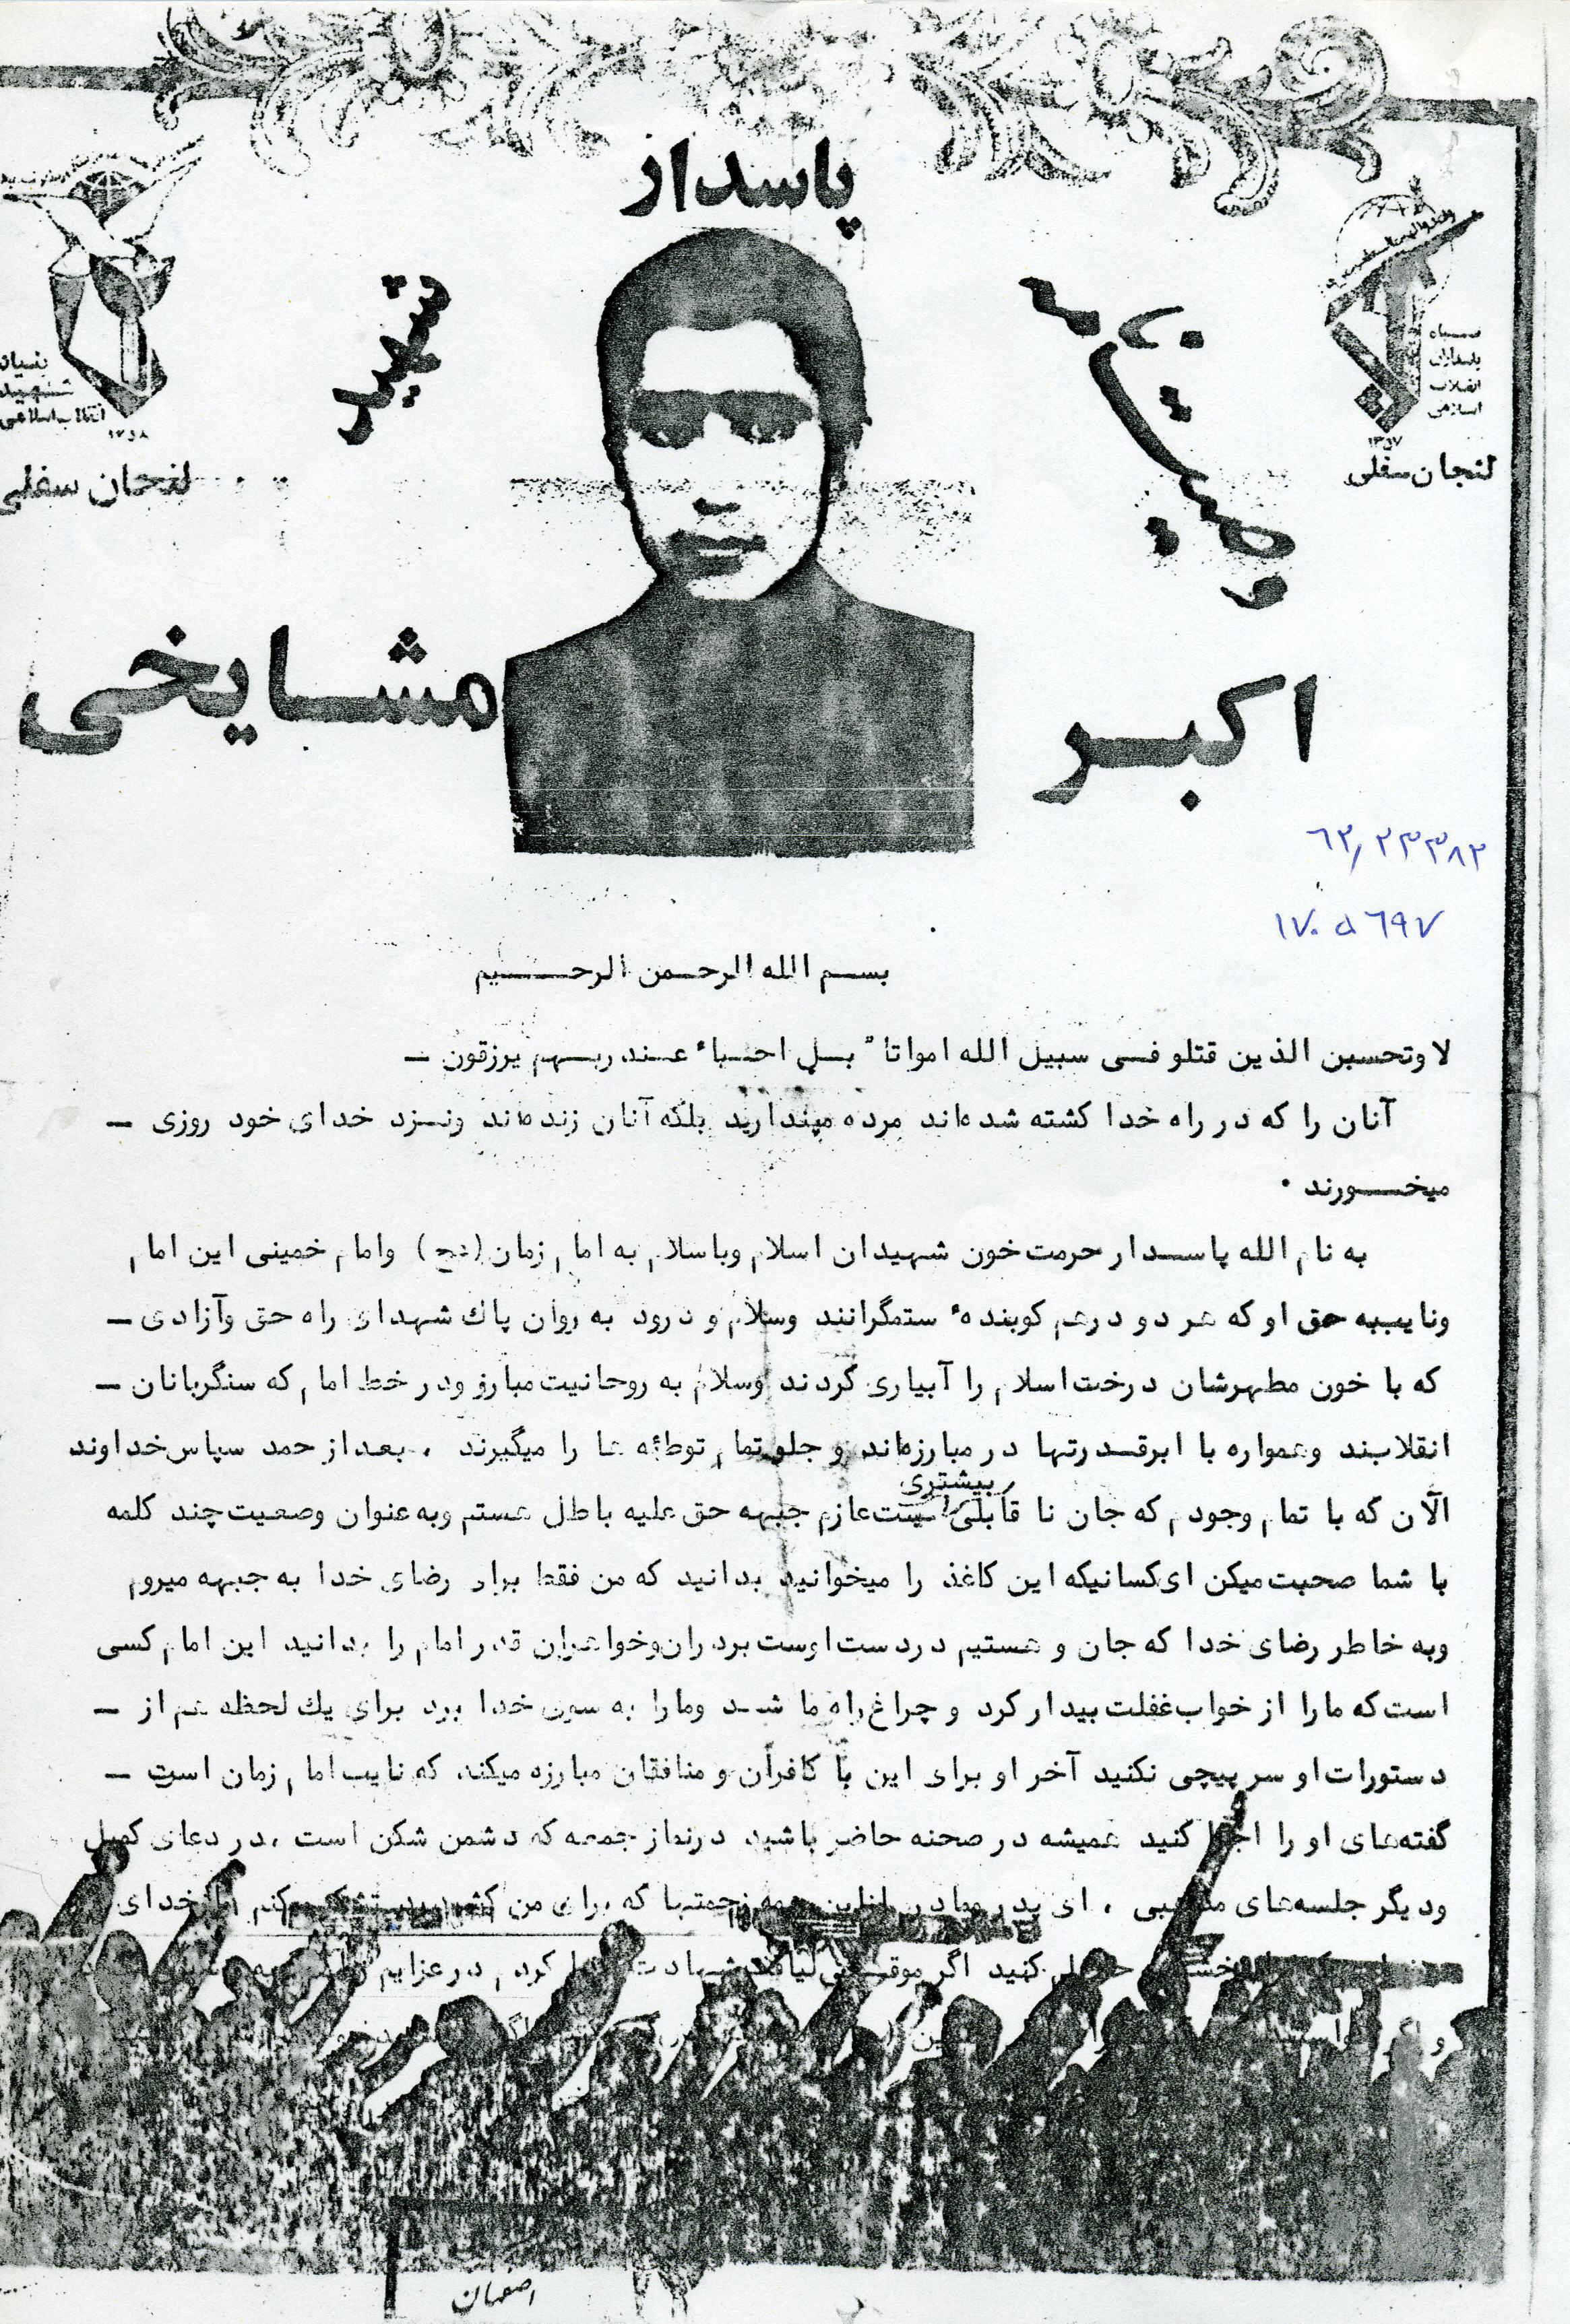 پاسدار
شهید
وصیت نامه
سپاه
پاسداران
انقلاب
اسلامی
۱۳۵۷
لنجان سفلی
بنیاد
شهید
انقلاب اسلامی
۱۳۵۸
لنجان سفلی
اکبر
مشایخی
۶۲,۲۳۳۸۲
۱۷۰۵۶۹۷
بسم الله الرحمن الرحیم
لا وتحسبن الذین قتلو فی سبیل الله امواتا" بل احباء عند ربهم یرزقون –
آنان را که در راه خدا کشته شده‌اند مرده مپندارید بلکه آنان زنده‌اند ونزد خدای خود روزی –
میخورند .
به نام الله پاسدار حرمت خون شهیدان اسلام وباسلام به امام زمان (عج) وامام خمینی این امام
ونایببه حق او که هر دو درهم کوبنده ستمگرانند وسلام و درود به روان پاك شهدای راه حق وآزادی –
که با خون مطهرشان درخت اسلام را آبیاری کردند وسلام به روحانیت مبارزودر خط امام که سنگربانان –
انقلابند وهمواره با ابرقدرتها در مبارزه‌اند و جلو تمام توطئه ها را میگیرند . بعداز حمد سپاس خداوند
بیشتری
الآن که با تمام وجودم که جان نا قابلی نیست عازم جبهه حق علیه باطل هستم وبه عنوان وصعیت چند کلمه
با شما صحبت میکن ای کسانیکه این کاغذ را میخوانید بدانید که من فقط برای رضای خدا به جبهه میروم
وبه خاطر رضای خدا که جان و هستیم در دست اوست بردران وخواهران قدر امام را بدانید این امام کسی
است که مارا از خواب غفلت بیدار کرد و چراغ راه ما شد ومارا به سوی خدا برد برای یك لحظه هم از –
دستورات او سر پیچی نکنید آخر او برای این با کافران و منافقان مبارزه میکند که نایب امام زمان است –
گفته‌های او را اجرا کنید همیشه در صحنه حاضر باشید درنماز جمعه که دشمن شکن است ،در دعای کمیل
ودیگر جلسه‌های مذهبی . ای پدر ومادر همه زحمتها که برای من کشیدید تشکر میکنم خدای
کنید اگر لیاقت شهادت کردم در عزایم
و اگر
اصفهان